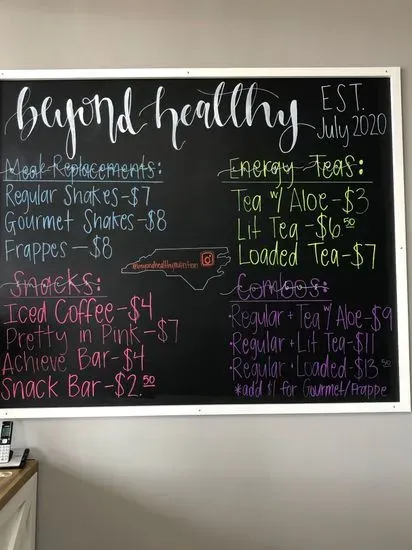 beyond healthy
EST.
July 2020
Meal Replacements:
Regular Shakes-$7
Gourmet Shakes-$8
Frappes-$8
Energy Teas:
Tea w/ Aloe-$3
Lit Tea-$6.50
Loaded Tea-$7
@beyondhealthynutrition
Snacks:
Iced Coffee-$4
Pretty in Pink-$7
Achieve Bar-$4
Snack Bar-$2.50
Combos:
·Regular + Tea w/ Aloe-$9
·Regular + Lit Tea-$11
·Regular + Loaded-$13.50
*add $1 for Gourmet/Frappe